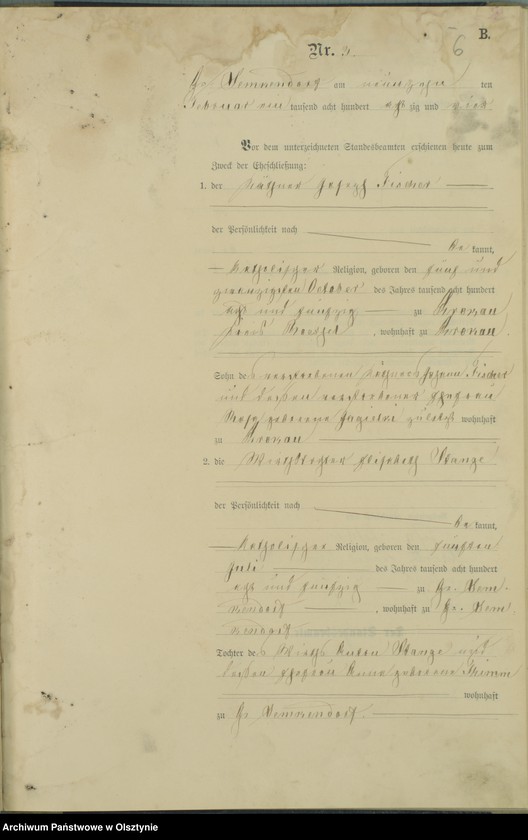 B.
6
Nr. 3
Gr. Lemkendorf am neunzehn ten
Februar ein tausend acht hundert acht zig und vier
Vor dem unterzeichneten Standesbeamten erschienen heute zum
Zweck der Eheschließung:
1. der Käthner Joseph Fischer
der Persönlichkeit nach
be kannt,
katholischer Religion, geboren den fünf und
zwanzigsten October des Jahres tausend acht hundert
acht und fünfzig zu
Kreis Roessel, wohnhaft zu
Sohn des verstorbenen Käthners Johann Fischer
und dessen verstorbener Ehefrau
Rosa geborene zuletzt wohnhaft
zu
2. die Wirthstochter Elisabeth Stange
der Persönlichkeit nach
be kannt,
katholischer Religion, geboren den fünften
Juli des Jahres tausend acht hundert
acht und fünfzig zu Gr. Lem-
kendorf, wohnhaft zu Gr. Lem
kendorf
Tochter des Wirths Anton Stange und
dessen Ehefrau Anna geborene Grimm
wohnhaft
zu Gr. Lemkendorf.
Archiwum Państwowe w Olsztynie